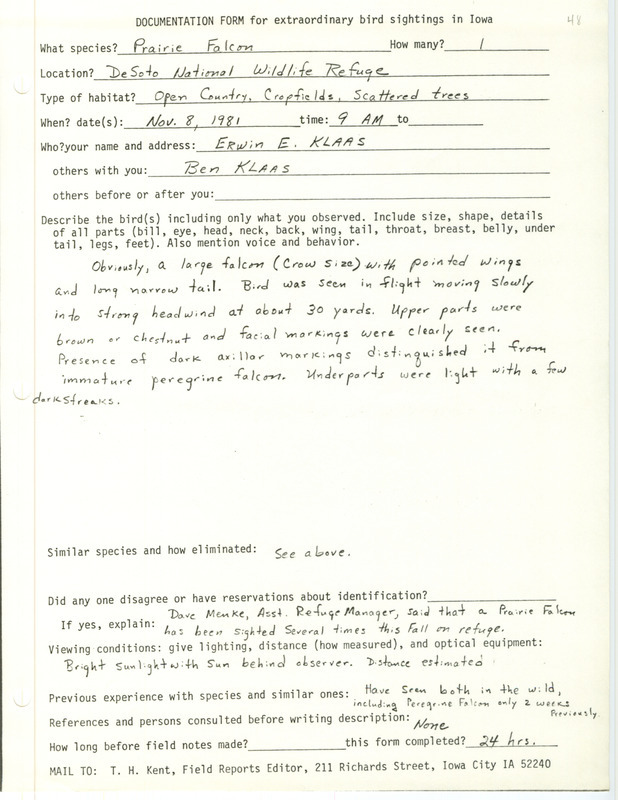 DOCUMENTATION FORM for extraordinary bird sightings in Iowa 48
What species? Prairie Falcon How many? 1
Location? DeSoto National Wildlife Refuge
Type of habitat? Open Country, Cropfields, Scattered trees
When? date(s): Nov. 8, 1981 time: 9 AM to
Who?your name and address: ERWIN E. KLAAS
others with you: Ben KLAAS
others before or after you:
Describe the bird(s) including only what you observed. Include size, shape, details
of all parts (bill, eye, head, neck, back, wing, tail, throat, breast, belly, under
tail, legs, feet). Also mention voice and behavior.
Obviously, a large falcon (Crow size) with pointed wings
and long narrow tail. Bird was seen in flight moving slowly
into strong headwind at about 30 yards. Upper parts were
brown or chestnut and facial markings were clearly seen.
Presence of dark axillar markings distinguished it from
immature peregrine falcon. Underparts were light with a few
dark streaks.
Similar species and how eliminated: See above.
Did any one disagree or have reservations about identification?
If yes, explain: Dave Menke, Asst. Refuge Manager, said that a Prairie Falcon
has been sighted several times this Fall on refuge.
Viewing conditions: give lighting, distance (how measured), and optical equipment:
Bright sunlight with sun behind observer. Distance estimated
Previous experience with species and similar ones: Have seen both in the wild,
including Peregrine Falcon only 2 weeks
previously.
References and persons consulted before writing description: None
How long before field notes made? this form completed? 24 hrs.
MAIL TO: T. H. Kent, Field Reports Editor, 211 Richards Street, Iowa City IA 52240